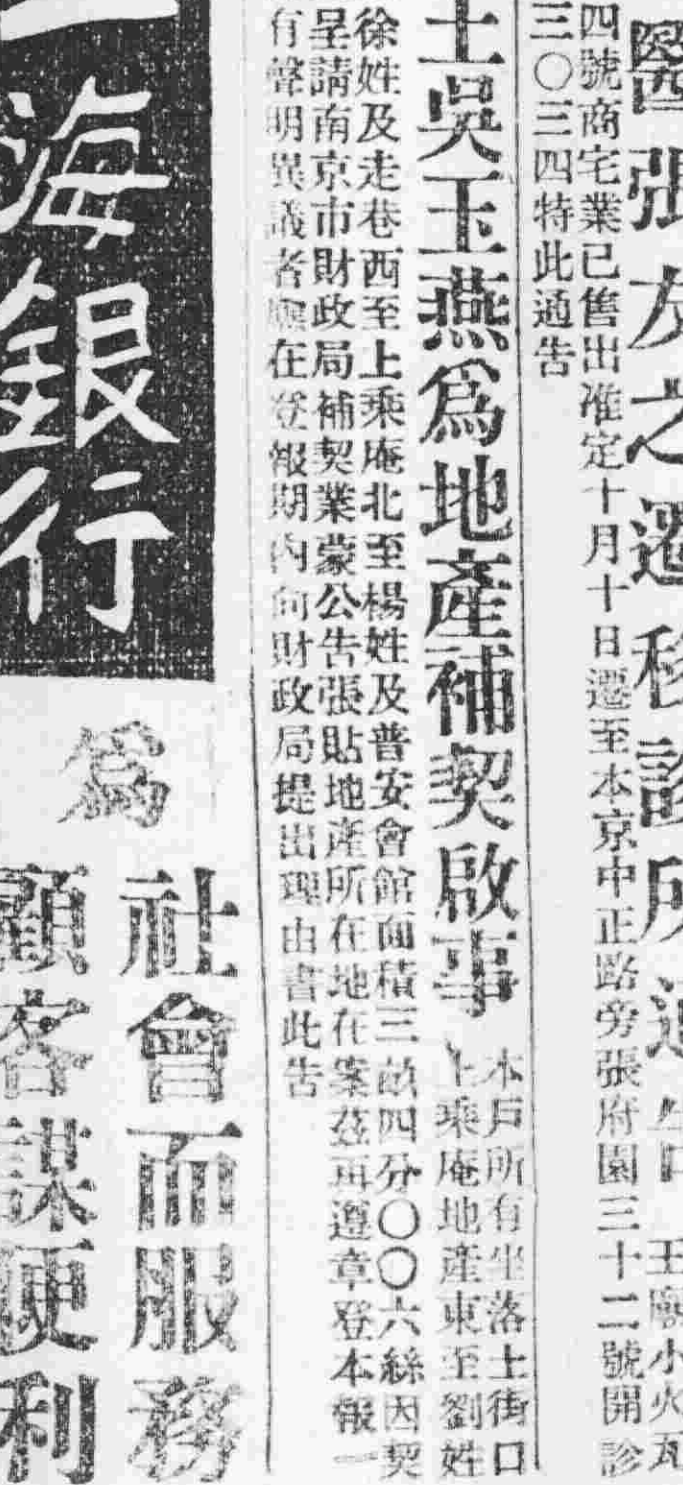 醫張友之遷移診所通告
王廟小火瓦
四號商宅業已售出准定十月十日遷至本京中正路旁張府園三十二號開診
三〇三四特此通告
士吳玉燕為地產補契啟事
本戶所有坐落土街口
上乘庵地產東至劉姓
徐姓及走巷西至上乘庵北至楊姓及普安會館面積三畝四分〇〇六絲因契
呈請南京市財政局補契業蒙公告張貼地產所在地在案茲再遵章登本報一
有聲明異議者應在登報期內向財政局提出理由書此告
海銀行
為
社會而服務
顧客謀便利